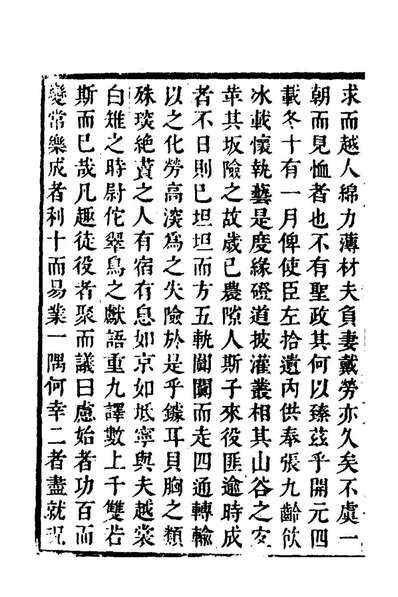 求而越人綿力薄材夫負妻戴勞亦久矣不虞一
朝而見恤者也不有聖政其何以臻茲乎開元四
載冬十有一月俾使臣左拾遺內供奉張九齡飲
冰載懷執藝是度緣磴道披灌叢相其山谷之宜
革其坂險之故歲已農隙人斯子來役匪逾時成
者不日則已坦坦而方五軌闐闐而走四通轉輸
以之化勞高深為之失險於是乎鐻耳貝胸之類
殊琰絶賮之人有宿有息如京如坻寧與夫越裳
白雉之時尉佗翠鳥之獻語重九譯數上千雙若
斯而已哉凡趣徒役者聚而議曰慮始者功百而
變常樂成者利十而易業一隅何幸二者盡就況